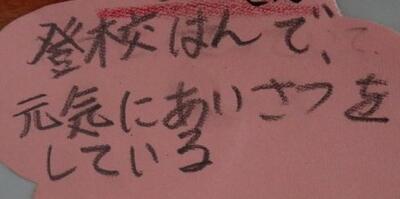 登校はんで、
元気にあいさつを
している